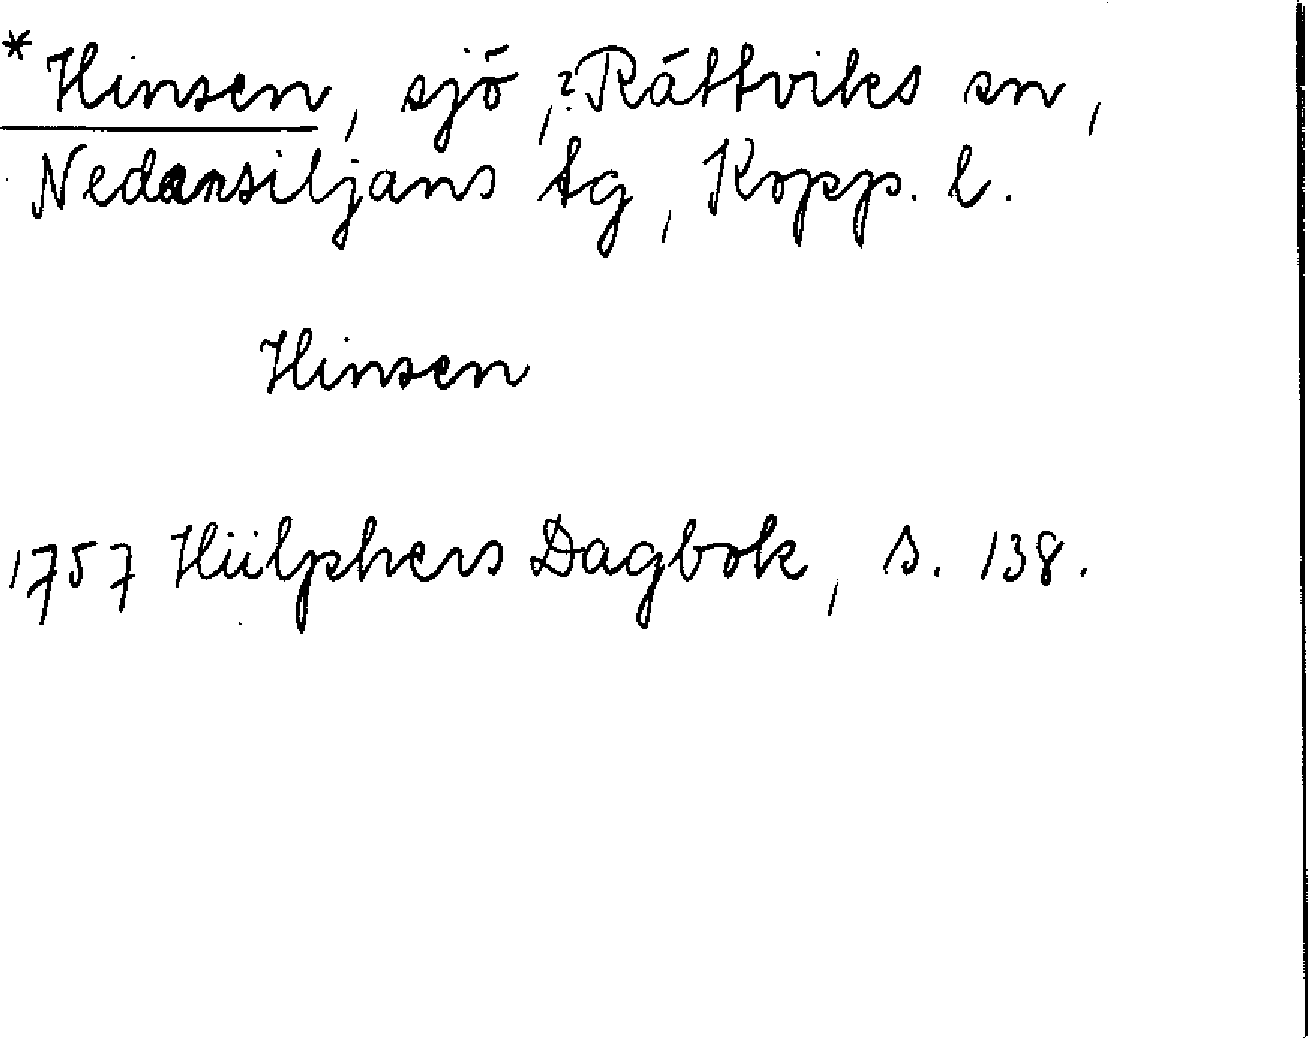 *Hinsen, sjö, ?Rättviks sn,
Nedansiljans tg, Kopp. l.
Hinsen
1757 Hülphers Dagbok, s. 138.